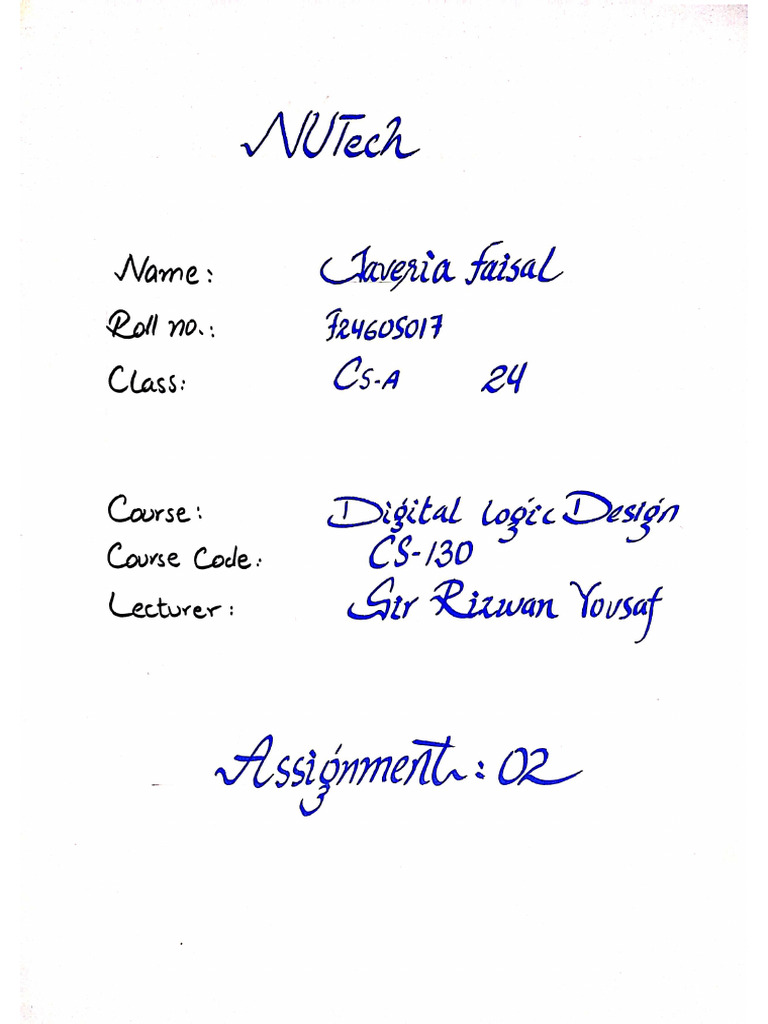 NUTech
Name: Javeria Faisal
Roll no.: F24605017
Class: CS-A 24
Course: Digital Logic Design
Course Code: CS-130
Lecturer: Sir Rizwan Yousaf
Assignment: 02